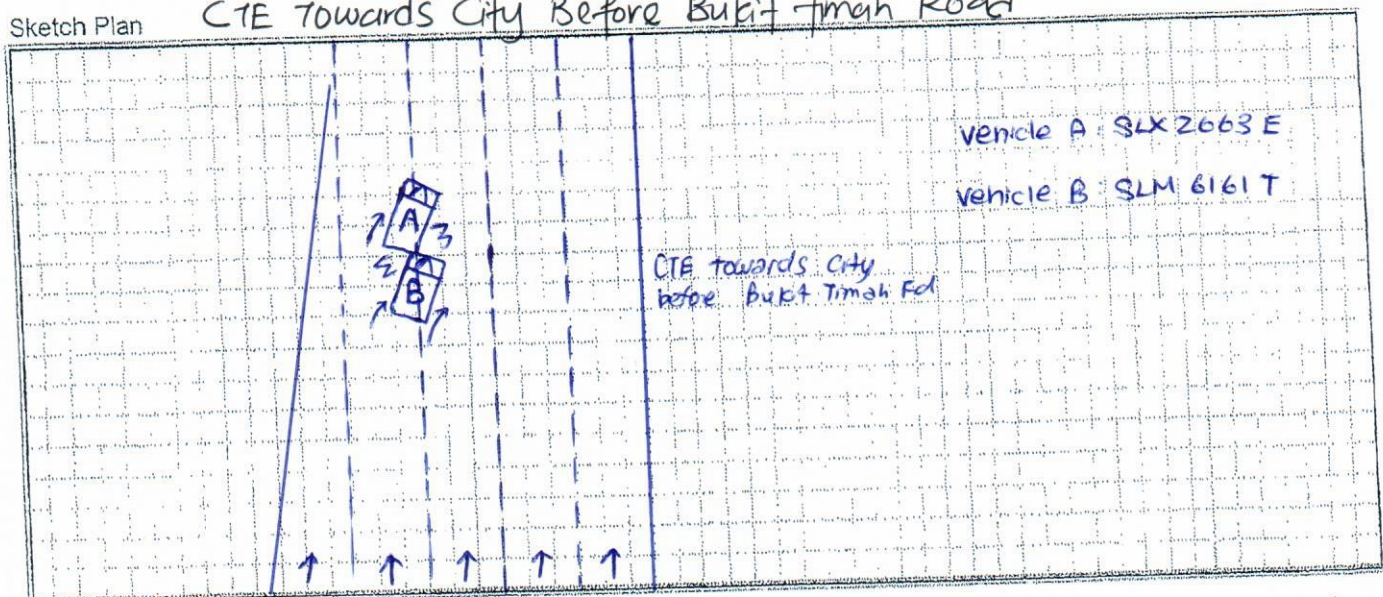 CTE Towards City Before Bukit Timah Road
Sketch Plan
vehicle A : SLX 2663 E
vehicle B : SLM 6161 T
A
B
CTE towards City
before Bukit Timah Rd